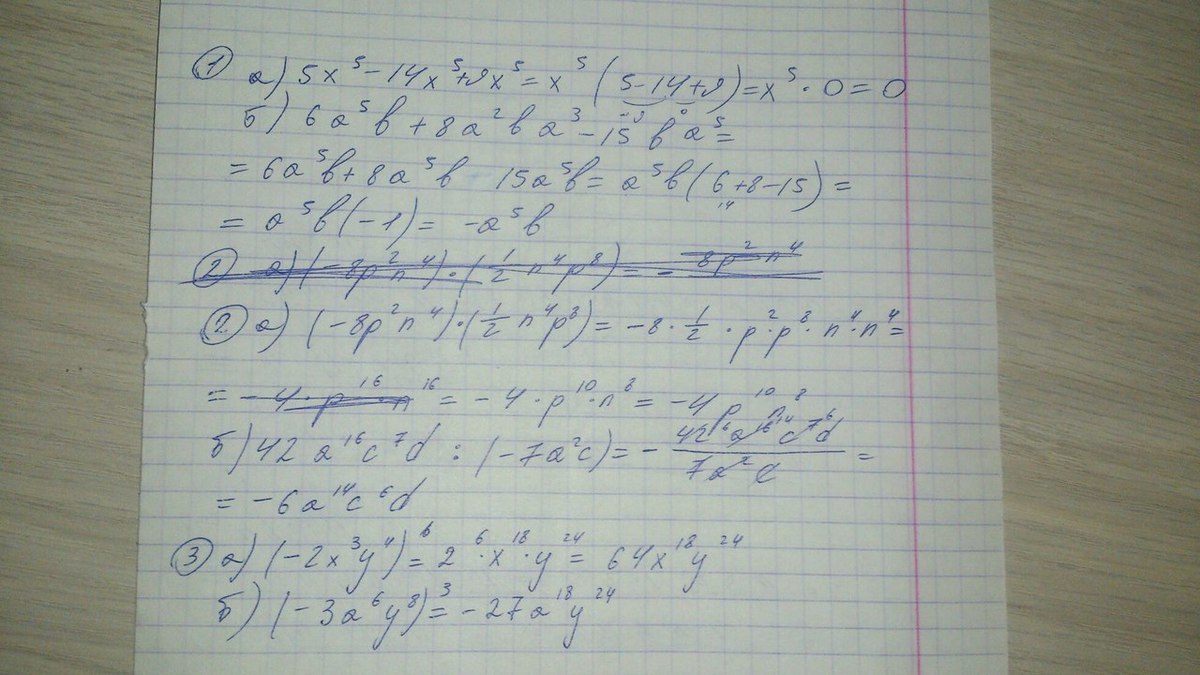 ① а) 5x⁵ - 14x⁵ + 9x⁵ = x⁵ (5 - 14 + 9) = x⁵ · 0 = 0
-9 0
б) 6a⁵b + 8a²ba³ - 15ba⁵ =
= 6a⁵b + 8a⁵b 15a⁵b = a⁵b(6 + 8 - 15) =
14
= a⁵b(-1) = -a⁵b
② а) (-8p²n⁴)·(1/2 n⁴p⁸) = - 8p²n⁴
② а) (-8p²n⁴)·(1/2 n⁴p⁸) = -8 · 1/2 · p²·p⁸ · n⁴·n⁴ =
= -4·p¹⁶·n¹⁶ = -4·p¹⁰·n⁸ = -4p¹⁰n⁸
б) 42a¹⁶c⁷d : (-7a²c) = - 42⁶a¹⁶ ¹⁴c⁷ ⁶d / 7a²c =
= -6a¹⁴c⁶d
③ а) (-2x³y⁴)⁶ = 2⁶·x¹⁸·y²⁴ = 64x¹⁸y²⁴
б) (-3a⁶y⁸)³ = -27a¹⁸y²⁴